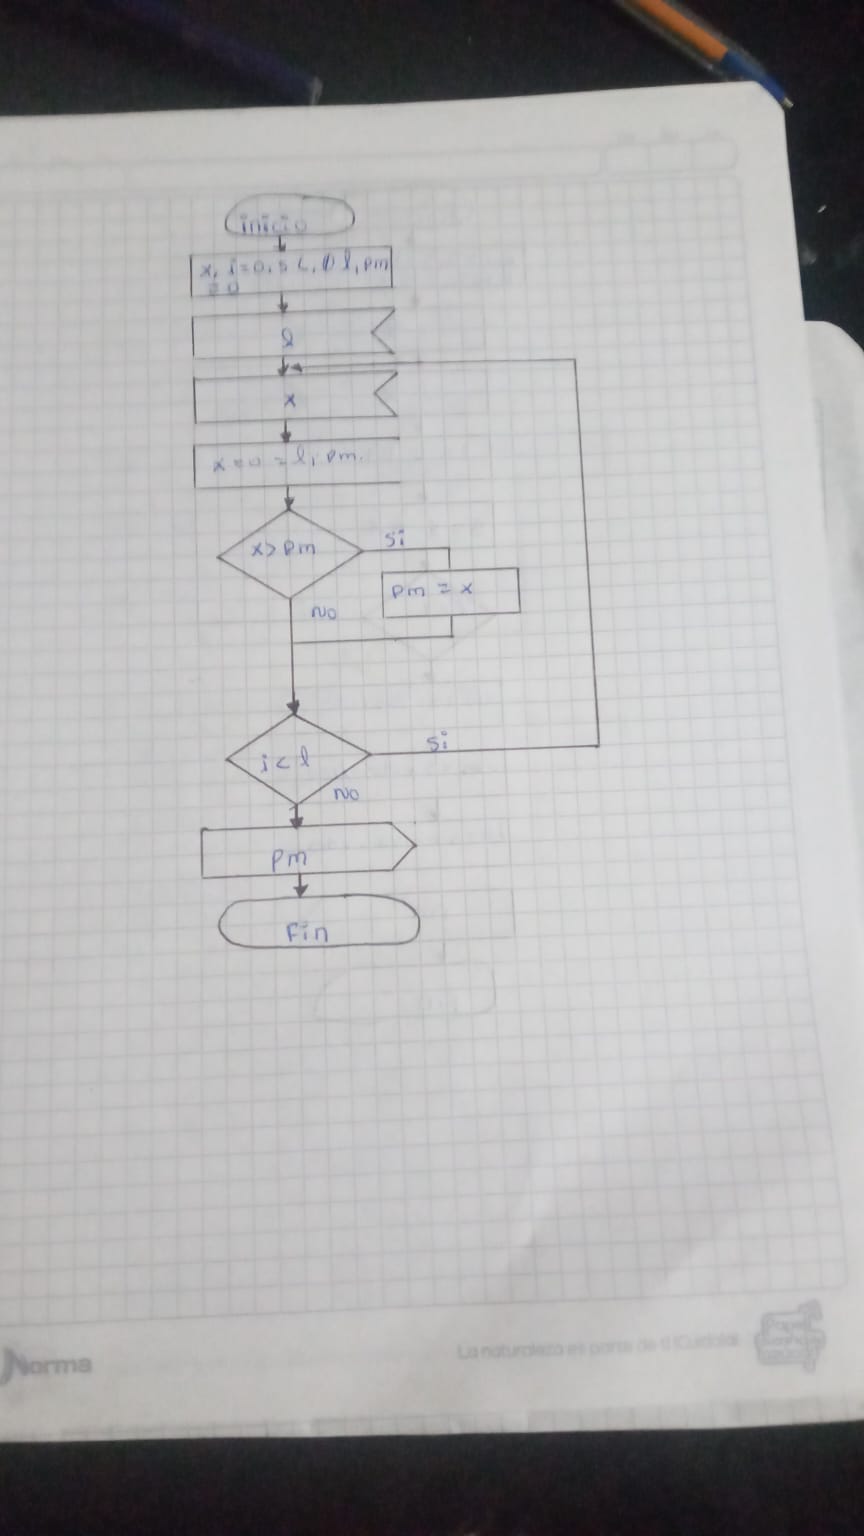 inicio
x, i=0, l, pm
= 0
l
x
x = 0 = l, pm.
x > pm
si
pm = x
NO
i < l
si
NO
pm
Fin
Norma
La naturaleza es parte de ti ¡Cuídala!